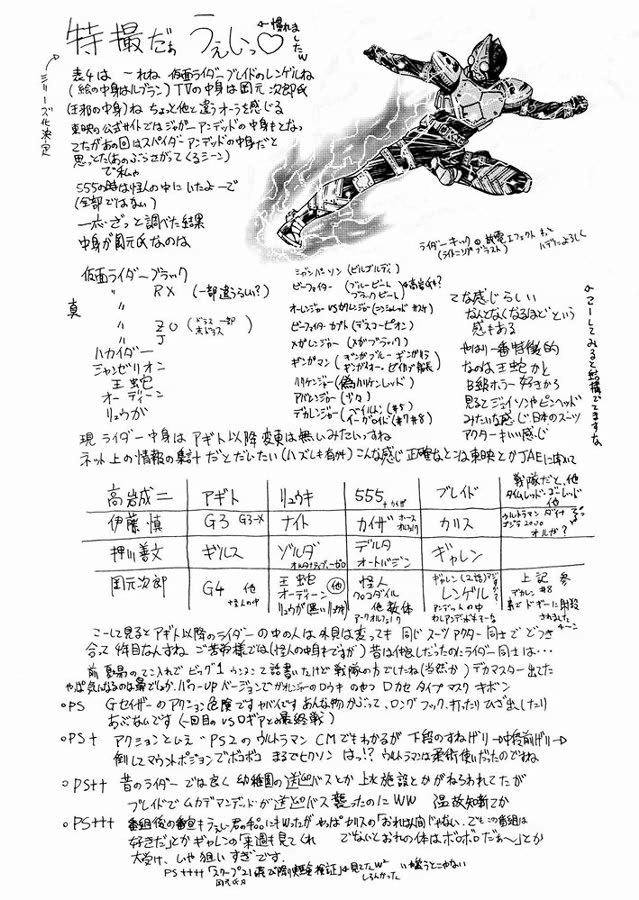 特撮だぁ うぇしっ♡ ←憧れましたw
シリーズ化決定
表4は これね 仮面ライダーブレイドのレンゲルね
(絵の中身はルブラン)TVの中身は岡元 次郎氏
(王邪の中身)ね ちょっと他と違うオーラを感じる
東映の公式サイトではジャガーアンデッドの中身もとなっ
てたがあの回はスパイダーアンデッドの中身だと
思っとた(あのぶらさがてくるシーン)
で私ゃ
555の時は怪人の中にいたよーで
(全部ではない)
一応ざっと調べた結果
中身が岡元氏なのは
ライダーキックの放電エフェクト
(ライトニングブラスト) ハデによろしく
仮面ライダーブラック
〃 RX (一部違うらしい?)
真
〃 ZO
〃 J
ハカイダー
シャンゼリオン
王蛇
オーディーン
リュウガ
ジャンパーソン(ビルゴルディ)
ビーファイター(ブルービート ブラックビート)
オーレンジャーVSカクレンジャー(ニンジャレッド
ビーファイターカブト(デスコーピオン)
メガレンジャー(メガブラック)
ギンガマン(ギンガブルー ギンガイオー
ハリケンジャー(偽ハリケンレッド)
アバレンジャー(少々)
デカレンジャー(ベイルドン(#5) イーガロイド(#7#8)
てな感じらしい
なんとなくなるほどという
感もある
やはり一番特徴的
なのは王蛇かと
B級ホラー好きから
見るとジェイソンやピンヘッド
みたいな感じ 日本のスーツ
アクターもいい感じ
こーしてみると結構でてますな
現ライダー中身はアギト以降変更は無しみたいっすね
ネット上の情報の集計だとだいたい(ハズレも有りか)こんな感じ 正確なとこは東映とかJAEにきいて
高岩成二 アギト リュウキ 555 ブレイド 戦隊だと、他 タイムレッド・ゴーレッド 他
伊藤慎 G3 G3-X ナイト カイザ ホースオルフェノク カリス ウルトラマンダイナ ゴジラ2000 オルガ?
押川善文 ギルス ゾルダ オルタナティブ・ゼロ デルタ オートバジン ギャレン
岡元次郎 G4 他 怪人の中 王蛇 他 オーディーン リュウガ(黒いリュウキ) 怪人 クロコダイル 他数体 アークオルフェノク ギャレン(2話) レンゲル アンデッドの中 上記参 デカレン#8
こーして見るとアギト以降のライダーの中の人は外見は変っても同じスーツアクター同士でどつき
合って4作目なんすね ご苦労様です(怪人の中身もですが)昔は仲良しだったのにライダー同士は…
前 夏場のてこ入れでビッグ1ウンヌンて話書いたけど戦隊の方でしたね(当然か)デカマスター出てた
PS Gセイザーのアクション危険ですヤバイです あんな物かぶって、ロングフック、打ったりひざ出したり
あぶないです(一回目のVSロギアとの最終戦)
PS+ アクションといえばPS2のウルトラマンCMでもわかるが下段のすねげり→中段前げり→
倒してマウントポジションでボコボコ まるでヒクソン はっ!? ウルトラマンは柔術使いだったのでわ
PS++ 昔のライダーでは良く幼稚園の送迎バスとか上水施設とかがねらわれてたが
ブレイドでムカデアンデッドが送迎バス襲ったのにWW 温故知新てか
PS+++
好きだ」とかギャレンの「来週も見てくれ でないとおれの体はボロボロだぁ〜」とか
大受け、いゃ狙いすぎです。